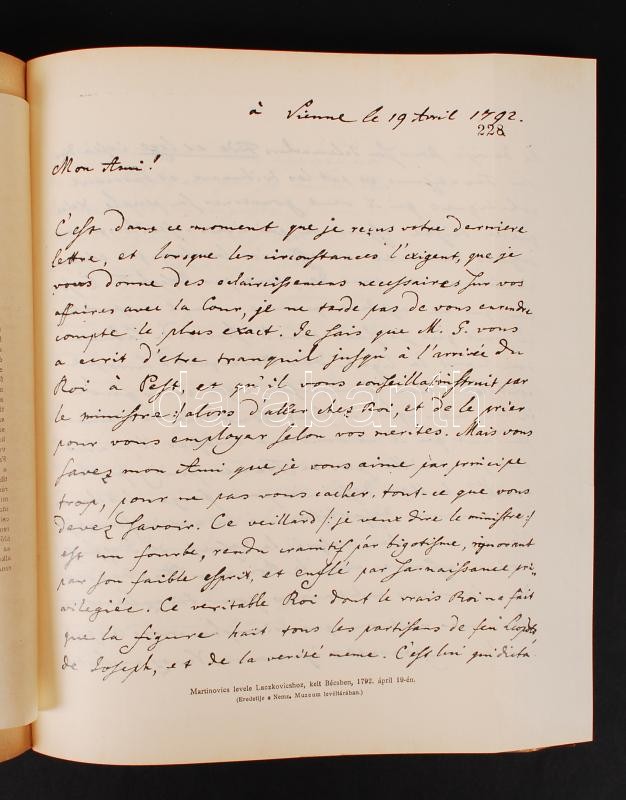 à Vienne le 19 Avril 1792.
228
Mon Ami!
C'est dans ce moment que je reçus votre derniere
lettre, et lorsque les circonstances l'exigent, que je
vous donne des eclaircissemens necessaires sur vos
affaires avec la Cour, je ne tarde pas de vous en rendre
compte le plus exact. Je sais que M. G. vous
a ecrit d'etre tranquil jusqu'à l'arrivée du
Roi à Pest, et qu'il vous conseilla /: instruit par
le ministre :/ alors d'aller chez Roi, et de le prier
pour vous employer selon vos merites. Mais vous
savez mon Ami que je vous aime par principe
trop, pour ne pas vous cacher, tout-ce que vous
devez savoir. Ce veillard /: je veux dire le ministre :/
est un fourbe, rendu craintif par bigotisme, ignorant
par son faible esprit, et enflé par sa naissance pri-
vilegiée. Ce veritable Roi dont le vrais Roi ne fait
que la figure hait tous les partisans de feu
de Joseph, et de la verité même. C'est lui qui dicta
darabanth
Martinovics levele Laczkovicshoz, kelt Bécsben, 1792. ápril 19-én.
(Eredetije a Nemz. Muzeum levéltárában.)